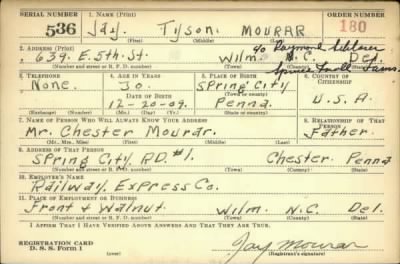 SERIAL NUMBER 1. NAME (Print) ORDER NUMBER
536 Jay. Tyson. MOURAR 180
(First) (Middle) (Last)
2. ADDRESS (Print) % Raymond
639. E. 5th. St. Wilm. N.C. Del.
(Number and street or R. F. D. number) (Town) (County) (State)
3. TELEPHONE 4. AGE IN YEARS 5. PLACE OF BIRTH 6. COUNTRY OF CITIZENSHIP
None. 30. Spring City
DATE OF BIRTH (Town or county)
12-20-09. Penna. U.S.A.
(Exchange) (Number) (Mo.) (Day) (Yr.) (State or country)
7. NAME OF PERSON WHO WILL ALWAYS KNOW YOUR ADDRESS 8. RELATIONSHIP OF THAT PERSON
Mr. Chester Mourar. Father.
(Mr., Mrs., Miss) (First) (Middle) (Last)
9. ADDRESS OF THAT PERSON
Spring City, R.D. #1. Chester. Penna
(Number and street or R. F. D. number) (Town) (County) (State)
10. EMPLOYER'S NAME
Railway. Express Co.
11. PLACE OF EMPLOYMENT OR BUSINESS
Front & Walnut. Wilm. N.C. Del.
(Number and street or R. F. D. number) (Town) (County) (State)
I AFFIRM THAT I HAVE VERIFIED ABOVE ANSWERS AND THAT THEY ARE TRUE.
REGISTRATION CARD Jay Mourar
D. S. S. Form 1 (over) (Registrant's signature)